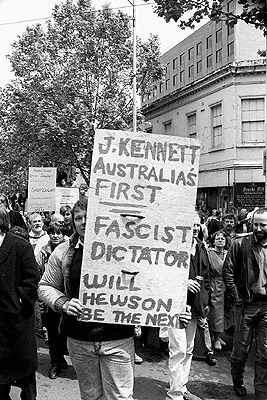 J. KENNETT
AUSTRALIA'S
FIRST
FASCIST
DICTATOR
WILL
HEWSON
BE THE NEXT